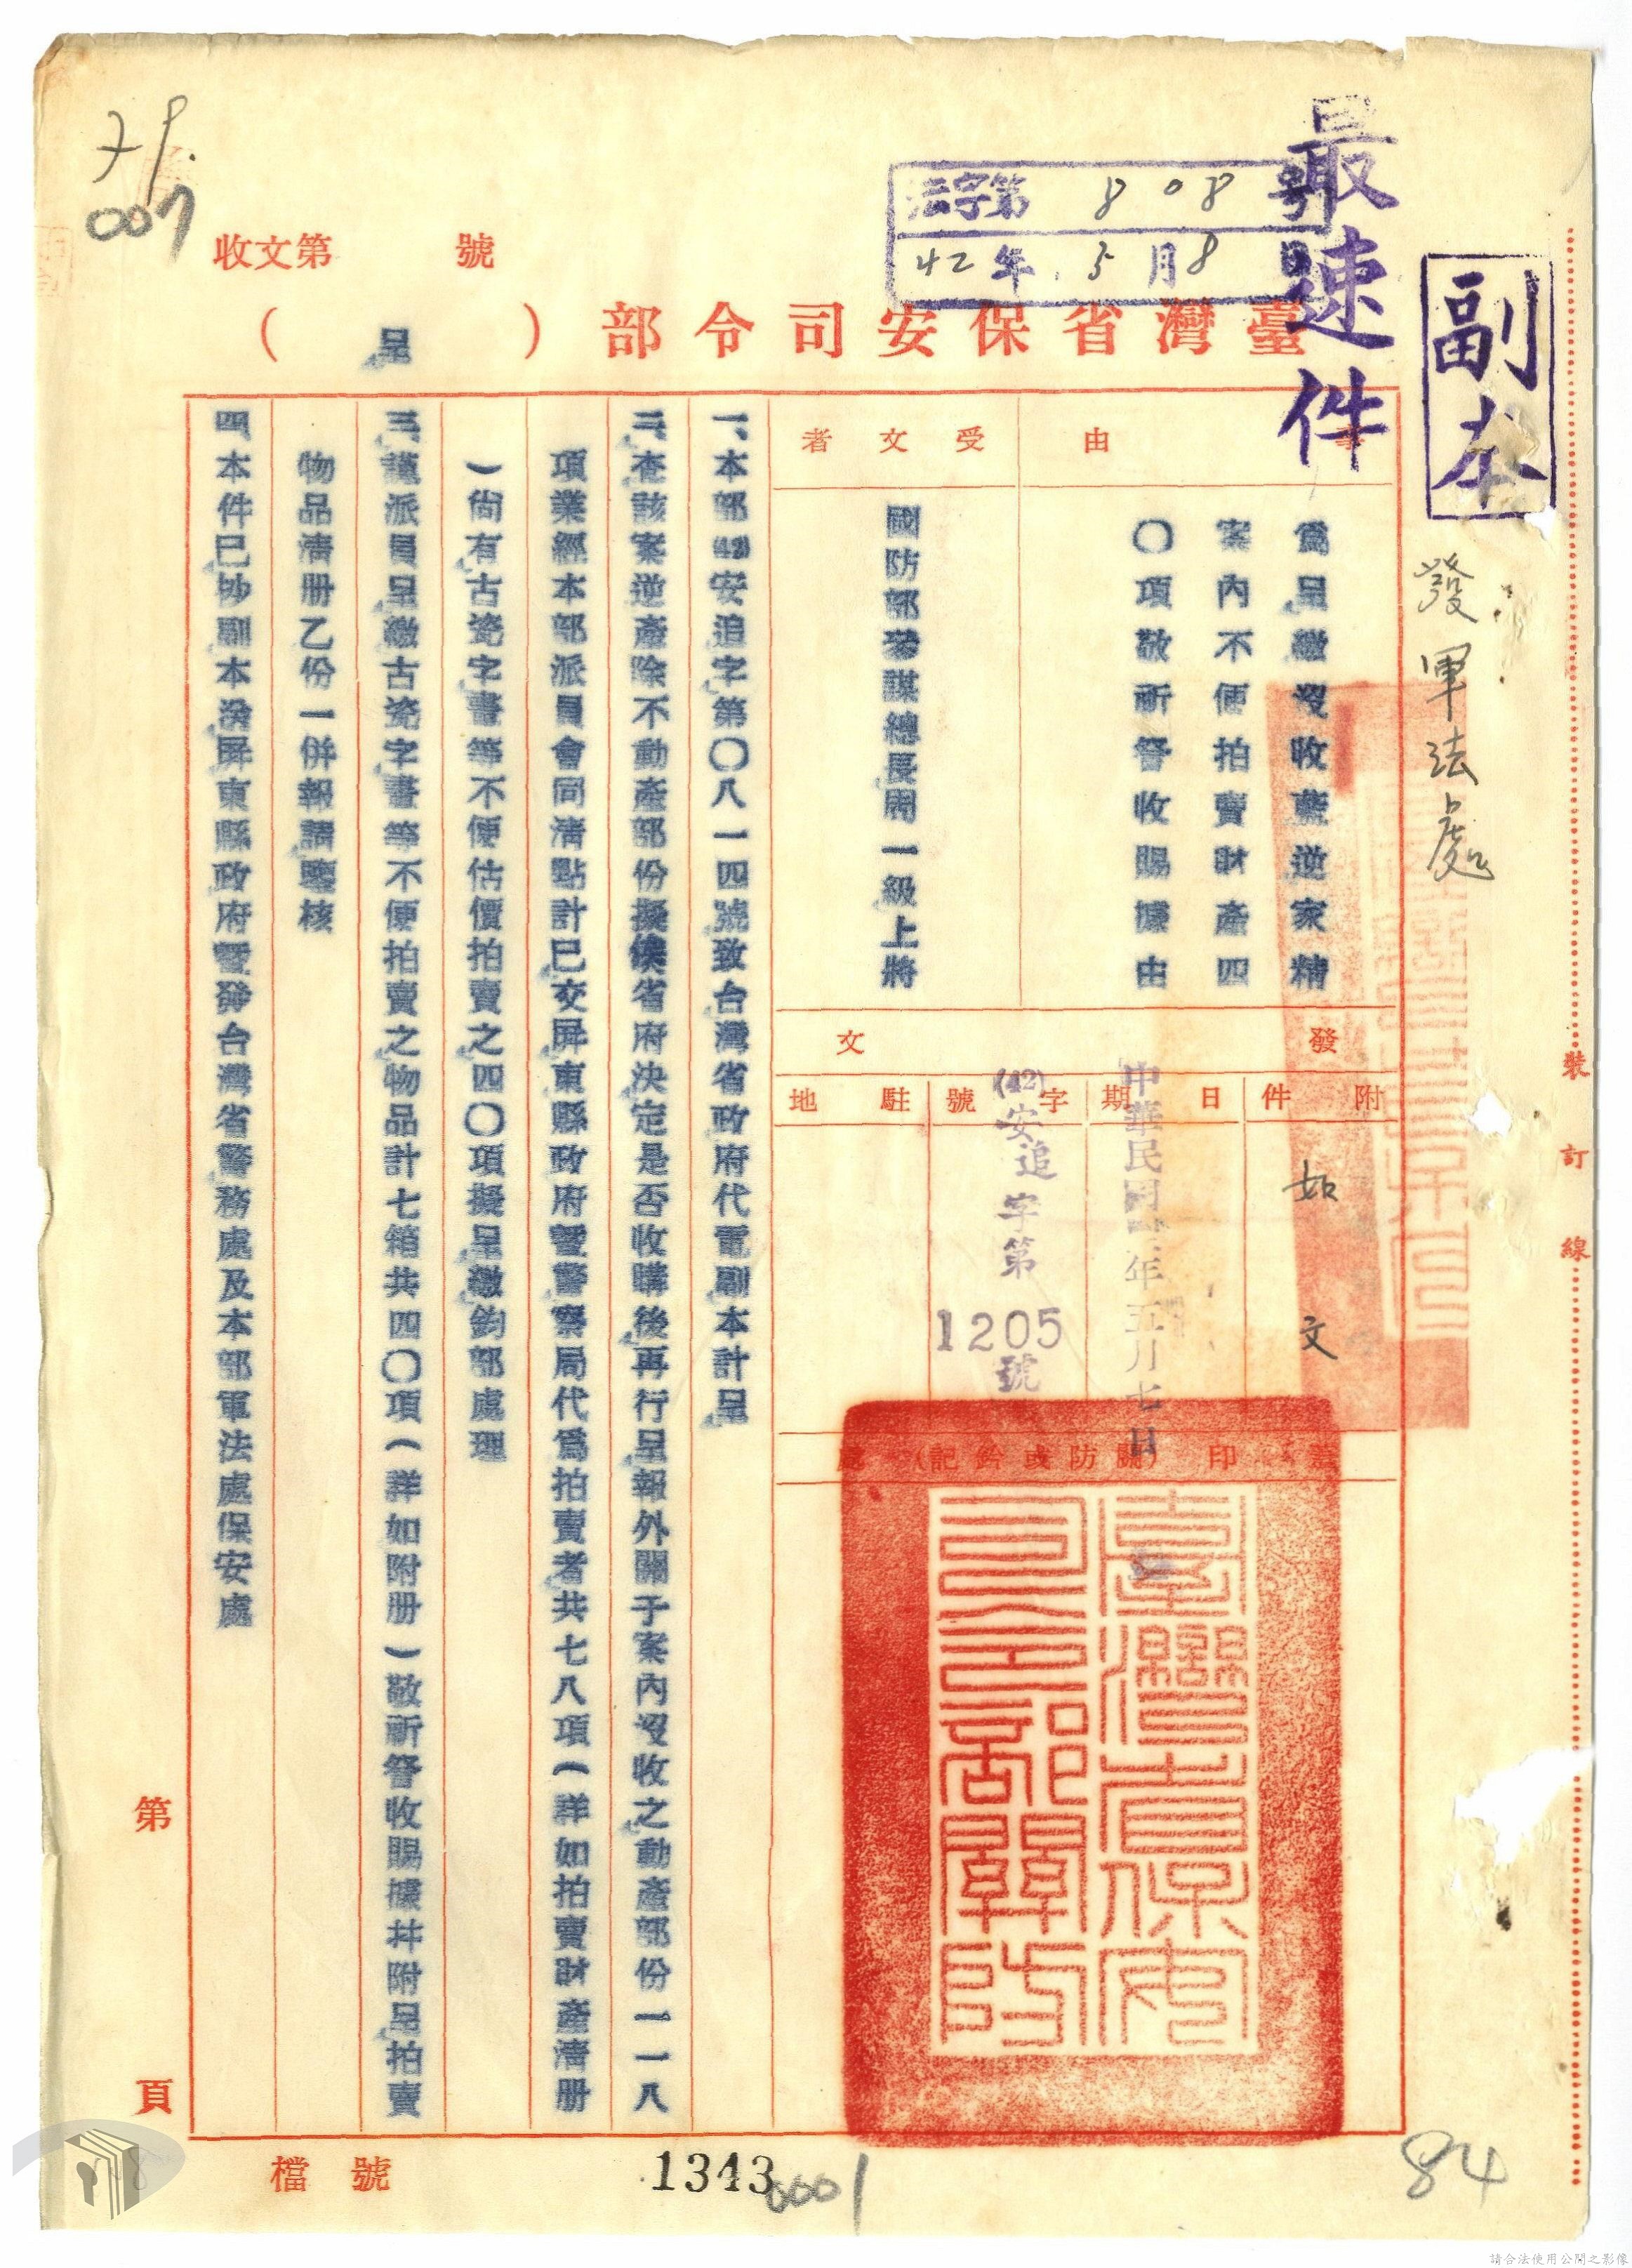 最速件
副本
發軍法處
法字第808號
42年5月8日
收文第 號
臺灣省保安司令部（呈）
由
為呈繳沒收藍逆家精
案內不便拍賣財產四
〇項敬祈詧收賜據由
受文者
國防部參謀總長周一級上將
發文
附件
如文
日期
中華民國四二年五月七日
字號
(42)安追字第1205號
駐地
蓋印（關防或鈐記）處
臺灣省保安司令部關防
一、本部(42)安追字第〇八一四號致台灣省政府代電副本計呈
二、查該案逆產除不動產部份擬俟省府決定是否收購後再行呈報外關于案內沒收之動產部份一一八
項業經本部派員會同清點計已交屏東縣政府暨警察局代為拍賣者共七八項（詳如拍賣財產清册
）尚有古瓷字畫等不便估價拍賣之四〇項擬呈繳鈞部處理
三、謹派員呈繳古瓷字畫等不便拍賣之物品計七箱共四〇項（詳如附册）敬祈詧收賜據并附呈拍賣
物品清册乙份一併報請鑒核
四、本件已抄副本湧屏東縣政府暨發台灣省警務處及本部軍法處保安處
裝訂線
第 頁
檔號
1343
0001
84
007
請合法使用公開之影像